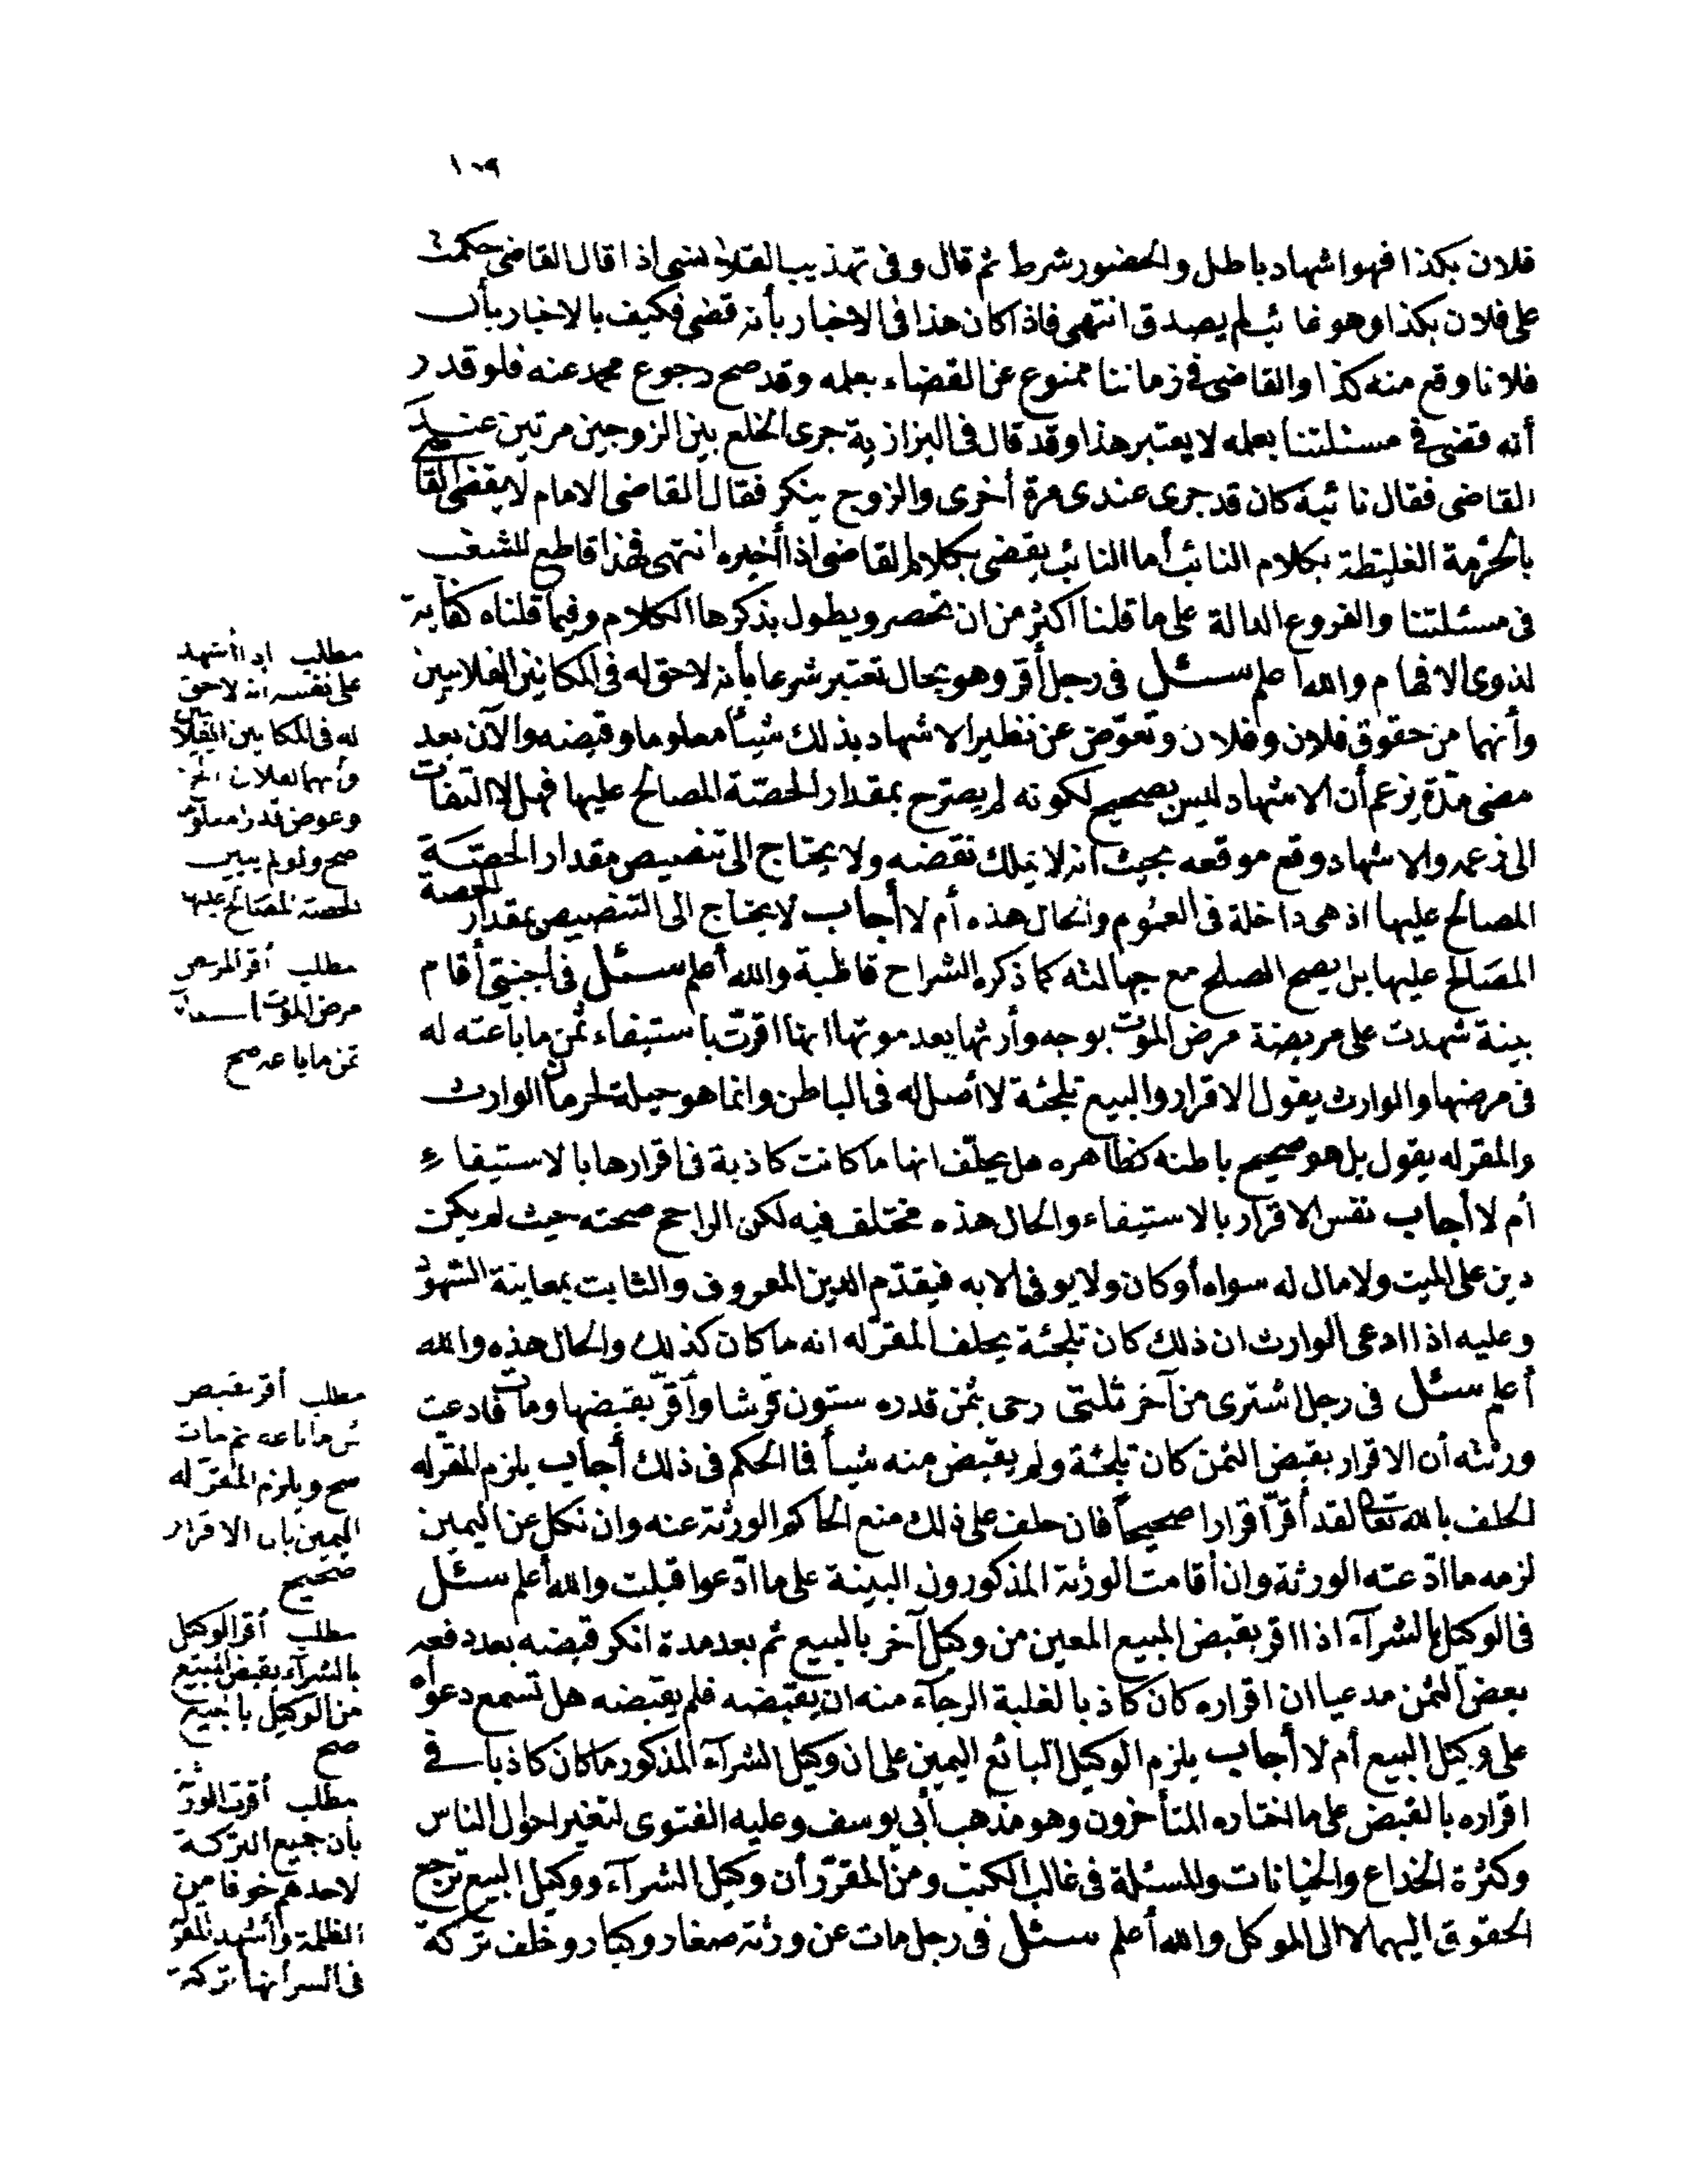 ١٠٩
فلان بكذا فهو اشهاد باطل والحضور شرط ثم قال وفى تهذيب القلانسى اذا قال القاضى حكمت
على فلان بكذا وهو غائب لم يصدق انتهى فاذا كان هذا فى الاخبار بأنه قضى فكيف بالاخبار بأن
فلانا وقع منه كذا والقاضى فى زماننا ممنوع عن القضاء بعلمه وقد صح رجوع محمد عنه فلو قدر
أنه قضى فى مسئلتنا بعلمه لا يعتبر هذا وقد قال فى البزازية جرى الخلع بين الزوجين مرتين عند
القاضى فقال نائبه كان قد جرى عندى مرة أخرى والزوج ينكر فقال القاضى الامام لا يقضى القاضى
بالحرمة الغليظة بكلام النائب أما النائب يقضى بكلام القاضى اذا أخبره انتهى فهذا قاطع للشغب
فى مسئلتنا والفروع الدالة على ما قلنا اكثر من ان تحصر ويطول بذكرها الكلام وفيما قلناه كفاية
لذوى الافهام والله اعلم سئل فى رجل أقر وهو بحال تعتبر شرعا بأنه لا حق له فى المكانين الفلانيين
وأنهما من حقوق فلان وفلان وتعوّض عن نظير الاشهاد بذلك شيأ معلوما وقبضه والآن بعد
مضى مدّة يزعم أن الاشهاد ليس بصحيح لكونه لم يصرّح بمقدار الحصّة المصالح عليها فهل لا التفات
الى زعمه والاشهاد وقع موقعه بحيث انه لا يملك نقضه ولا يحتاج الى تنصيص مقدار الحصّة
المصالح عليها اذ هى داخلة فى العموم والحال هذه أم لا أجاب لا يحتاج الى التنصيص بمقدار الحصة
المصالح عليها بل يصح الصلح مع جهالته كما ذكره الشراح قاطبة والله أعلم سئل فى أجنبىّ أقام
بينة شهدت على مريضة مرض الموت بوجه وارثها بعد موتها انها اقرّت باستيفاء ثمن ما باعته له
فى مرضها والوارث يقول الاقرار والبيع تلجئة لا أصل له فى الباطن وانما هو حيلة لحرمان الوارث
والمقر له يقول بل هو صحيح باطنه كظاهره هل يحلّف انها ما كانت كاذبة فى اقرارها بالاستيفاء
أم لا أجاب نفس الاقرار بالاستيفاء والحال هذه مختلف فيه لكن الراجح صحته حيث لم يكن
دين على الميت ولا مال له سواه أو كان ولا يوفى الا به فيقدّم الدين المعروف والثابت بمعاينة الشهود
وعليه اذا ادعى الوارث ان ذلك كان تلجئة يحلف المقرّ له انه ما كان كذلك والحال هذه والله
أعلم سئل فى رجل اشترى من آخر ثلثى رحى بثمن قدره ستون قرشا وأقرّ بقبضها ومات فادعت
ورثته أن الاقرار بقبض الثمن كان تلجئة ولم يقبض منه شيأ فما الحكم فى ذلك أجاب يلزم المقر له
الحلف بالله تعالى لقد أقرّ اقرارا صحيحاً فان حلف على ذلك منع الحاكم الورثة عنه وان نكل عن اليمين
لزمه ما ادّعته الورثة وان أقامت الورثة المذكورون البينة على ما ادّعوا قبلت والله أعلم سئل
فى الوكيل بالشرآء اذا اقر بقبض المبيع المعين من وكيل آخر بالبيع ثم بعد مدة انكر قبضه بعد دفعه
بعض الثمن مدعيا ان اقراره كان كاذبا لغلبة الرجآء منه ان يقبضه فلم يقبضه هل تسمع دعواه
على وكيل البيع أم لا أجاب يلزم الوكيل البائع اليمين على ان وكيل الشرآء المذكور ما كان كاذبا فى
اقراره بالقبض على ما اختاره المتأخرون وهو مذهب أبى يوسف وعليه الفتوى لتغير احوال الناس
وكثرة الخداع والخيانات والمسئلة فى غالب الكتب ومن المقرّر أن وكيل الشرآء ووكيل البيع ترجع
الحقوق اليهما لا الى الموكل والله أعلم سئل فى رجل مات عن ورثة صغار وكبار وخلف تركة
مطلب اذا أشهد
على نفسه انه لا حق
له فى المكانين الفلانيين
وأنهما لفلان الخ
وعوض قدرا معلوما
صح ولو لم يبين
الحصة المصالح عليها
مطلب أقر المريض
مرض الموت باستيفاء
ثمن ما باعه صح
مطلب أقر بقبض
ثمن ما باعه ثم مات
صح ويلزم المقرّ له
اليمين بان الاقرار
صحيح
مطلب أقر الوكيل
بالشرآء بقبض المبيع
من الوكيل بالبيع
صح
مطلب أقرت الورثة
بأن جميع التركة
لاحدهم خوفا من
الظلمة وأشهد المقر
فى السر أنها تركة